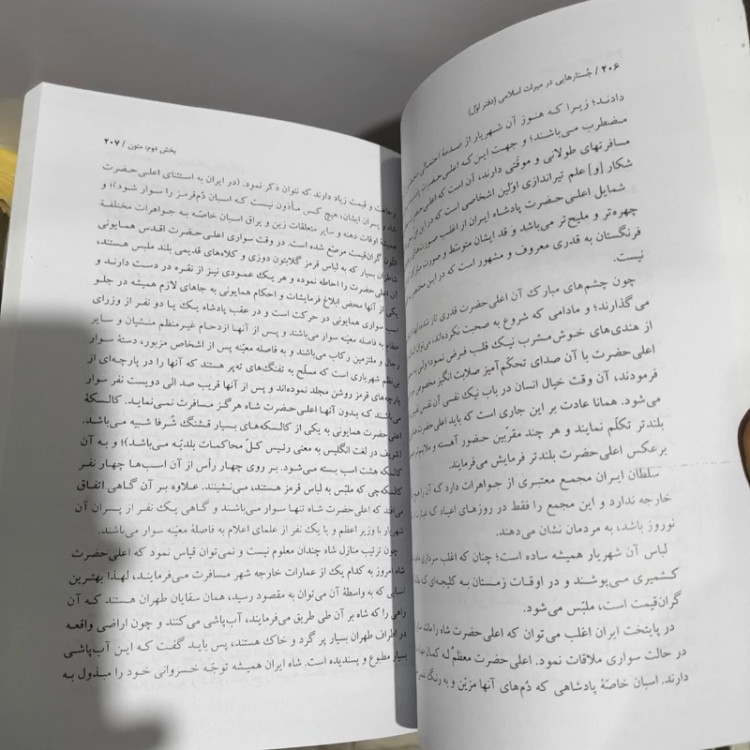 ۲۰۶ / جُستارهایی در میراث اسلامی (دفتر اوّل)
دادند؛ زیرا که هنوز آن شهریار از صدمهٔ
مضطرب می‌باشند؛ و جهت این‌که اعلی‌حضرت
مسافرتهای طولانی و موقّتی دارند، آن است که اعلی
شکار [و] علم تیراندازی اوّلین اشخاصی است که در این
شمایل اعلی‌حضرت پادشاه ایران از اغلب
چهره‌تر و ملیح‌تر می‌باشد و قد ایشان متوسّط و صورت مبارک
فرنگستان به قدری معروف و مشهور است که در این
نیست.
چون چشم‌های مبارک آن اعلی‌حضرت قدری تار
می‌گذارند؛ و مادامی که شروع به صحبت نکرده‌اند،
از هندی‌های خوش‌مشرب نیک قلب فرض نمود؛
اعلی‌حضرت با آن صدای تحکّم‌آمیز صلابت انگیز مخصوص
فرمودند، آن وقت خیال انسان در باب نیک نفسی آن
می‌شود. همانا عادت بر این جاری است که باید اعلی‌حضرت
بلندتر تکلّم نمایند و هر چند مقرّبین حضور آهسته و
برعکس اعلی‌حضرت بلندتر فرمایش می‌فرمایند.
سلطان ایران مجمع معتبری از جواهرات دارد که
خارجه ندارد و این مجمع را فقط در روزهای اعیاد که
نوروز باشد، به مردمان نشان می‌دهند.
لباس آن شهریار همیشه ساده است؛ چنان که اغلب سرداری
کشمیری می‌پوشند و در اوقات زمستان به کلیجه‌ای که
گران‌قیمت است، ملبّس می‌شود.
در پایتخت ایران اغلب می‌توان که اعلی‌حضرت شاه را
در حالت سواری ملاقات نمود. اعلی‌حضرت معظّم‌ٌ له
دارند. اسبان خاصّهٔ پادشاهی که دُم‌های آنها مزیّن و به رنگ
بخش دوم: متون / ۲۰۷
و زیاد دارند که نتوان ذکر نمود. (در ایران به استثنای اعلی‌حضرت
شاه و پسران ایشان، هیچ کس مأذون نیست که اسبان دُم‌قرمز را سوار شود)؛ و
اوقات دهنه و سایر متعلقات زین و یراق اسبان خاصّه به جواهرات مختلفهٔ
گران‌قیمت مرصّع شده است. در وقت سواری اعلی‌حضرت اقدس همایونی
شاطران بسیار که به لباس قرمز گلابتون دوزی و کلاه‌های قدیمی بلند ملبس هستند،
آن اعلی‌حضرت را احاطه نموده و هر یک عمودی نیز از نقره در دست دارند و
یکی از آنها محض ابلاغ فرمایشات و احکام همایونی به جاهای لازم همیشه در جلو
اسب سواری همایونی در حرکت است و در عقب پادشاه یک یا دو نفر از وزرای
عظام به فاصله معیّنه سوار می‌باشند و پس از آنها ازدحام غیرمنظم منشیان و سایر
رجال و ملتزمین رکاب می‌باشند؛ و به فاصله معیّنه پس از اشخاص مزبور، دستهٔ سوار
بی‌نظم شهریاری است که مسلّح به تفنگ‌های ته‌پر هستند که آنها را در پارچه‌ای از
پارچه‌های قرمز روشن مجلد نموده‌اند و پس از آنها قریب صد الی دویست نفر سوار
می‌باشند که بدون آنها اعلی‌حضرت شاه هرگز مسافرت نمی‌نماید. کالسکهٔ
اعلی‌حضرت همایونی به یکی از کالسکه‌های بسیار قشنگ شُرفا شبیه می‌باشد.
(شریف در لغت انگلیس به معنی رئیس کلّ محاکمات بلدیّه می‌باشد)؛ و به آن
کالسکه هشت اسب بسته می‌شود. بر روی چهار رأس از آن اسب‌ها چهار نفر
کالسکه‌چی که ملبّس به لباس قرمز هستند، می‌نشینند. علاوه بر آن گاهی اتفاق
می‌افتد که اعلی‌حضرت شاه تنها سوار می‌باشند و گاهی یک نفر از پسران آن
شهریار با وزیر اعظم و یا یک نفر از علمای اعلام به فاصلهٔ معیّنه سوار می‌باشند.
چون ترتیب منازل شاه چندان معلوم نیست و نمی‌توان قیاس نمود که اعلی‌حضرت
شاه امروز به کدام یک از عمارات خارجه شهر مسافرت می‌فرمایند، لهذا بهترین
اسبابی که به واسطهٔ آن می‌توان به مقصود رسید، همان سقایان طهران هستند که آن
راهی را که شاه بر آن طی طریق می‌فرمایند، آب‌پاشی می‌کنند و چون اراضی واقعه
در اطراف طهران بسیار پر گرد و خاک هستند، پس باید گفت که این آب‌پاشی
بسیار مطبوع و پسندیده است. شاه ایران همیشه توجّه خسروانی خود را مبذول به